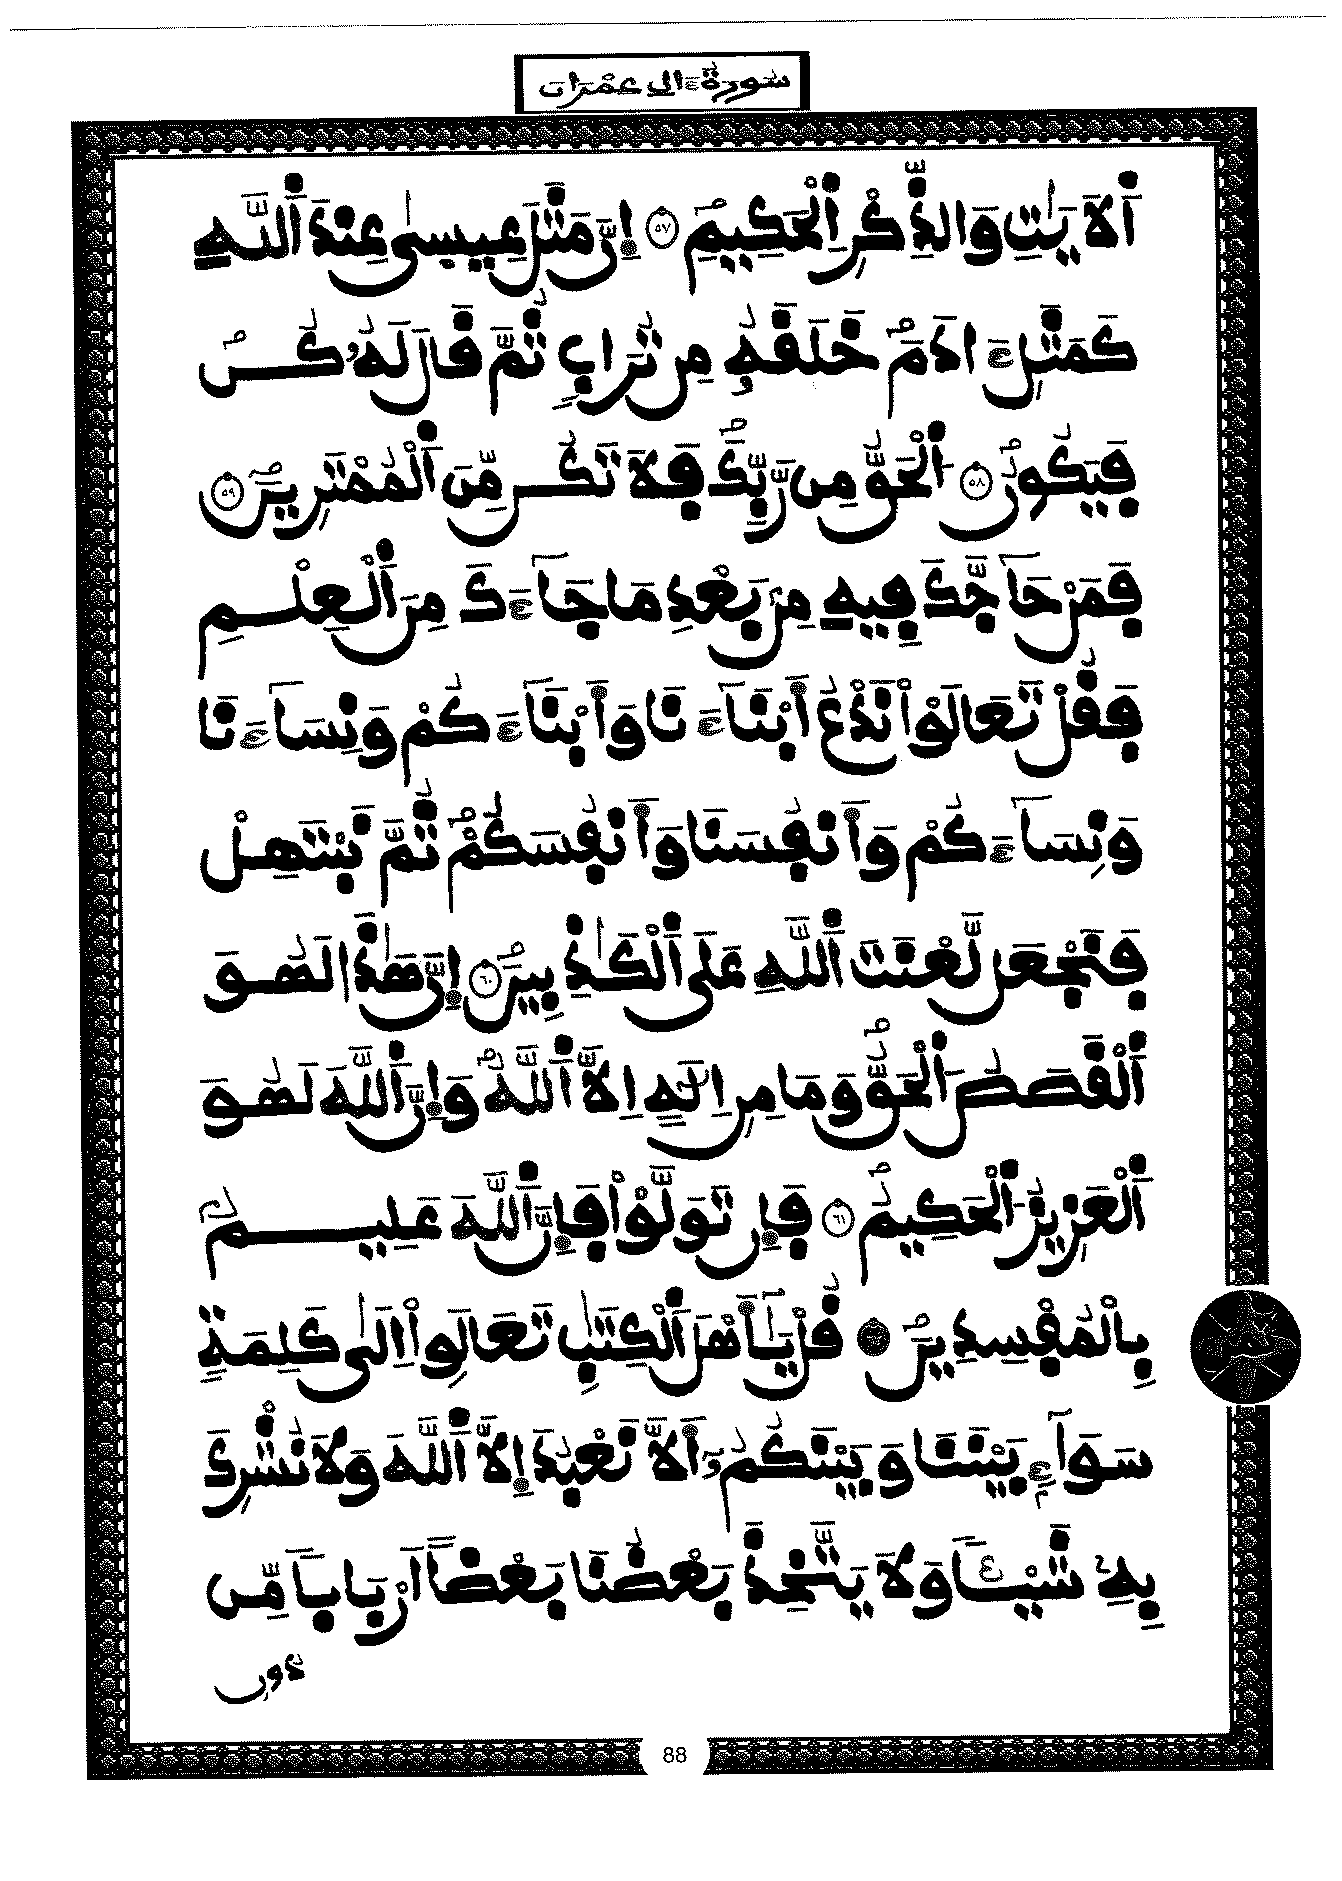 سورة ءال عمران
اَ۬لَايَٰتِ وَالذِّكْرِ اِ۬لْحَكِيمِ ٥٧ إِنَّ مَثَلَ عِيسىٰ عِندَ اَ۬للَّهِ
كَمَثَلِ ءَادَمَ خَلَقَهُۥ مِن تُرَابٖ ثُمَّ قَالَ لَهُۥ كُن
فَيَكُونُ ٥٨ اُ۬لْحَقُّ مِن رَّبِّكَ فَلَا تَكُن مِّنَ اَ۬لْمُمْتَرِينَ ٥٩
فَمَنْ حَآجَّكَ فِيهِ مِنۢ بَعْدِ مَا جَآءَكَ مِنَ اَ۬لْعِلْمِ
فَقُلْ تَعَالَوْاْ نَدْعُ أَبْنَآءَنَا وَأَبْنَآءَكُمْ وَنِسَآءَنَا
وَنِسَآءَكُمْ وَأَنفُسَنَا وَأَنفُسَكُمْ ثُمَّ نَبْتَهِلْ
فَنَجْعَل لَّعْنَتَ اَ۬للَّهِ عَلَى اَ۬لْكَٰذِبِينَ ٦٠ إِنَّ هَٰذَا لَهُوَ
اَ۬لْقَصَصُ اُ۬لْحَقُّ وَمَا مِنِ اِلَٰهٍ اِلَّا اَ۬للَّهُ وَإِنَّ اَ۬للَّهَ لَهُوَ
اَ۬لْعَزِيزُ اُ۬لْحَكِيمُ ٦١ فَإِن تَوَلَّوْاْ فَإِنَّ اَ۬للَّهَ عَلِيمُۢ
بِالْمُفْسِدِينَ ٦٢ قُلْ يَٰٓأَهْلَ اَ۬لْكِتَٰبِ تَعَالَوِاْ اِلَىٰ كَلِمَةٖ
سَوَآءِۢ بَيْنَنَا وَبَيْنَكُمُۥٓ أَلَّا نَعْبُدَ إِلَّا اَ۬للَّهَ وَلَا نُشْرِكَ
بِهِۦ شَيْـٔاً وَلَا يَتَّخِذَ بَعْضُنَا بَعْضاً اَرْبَاباً مِّن
دُونِ
88